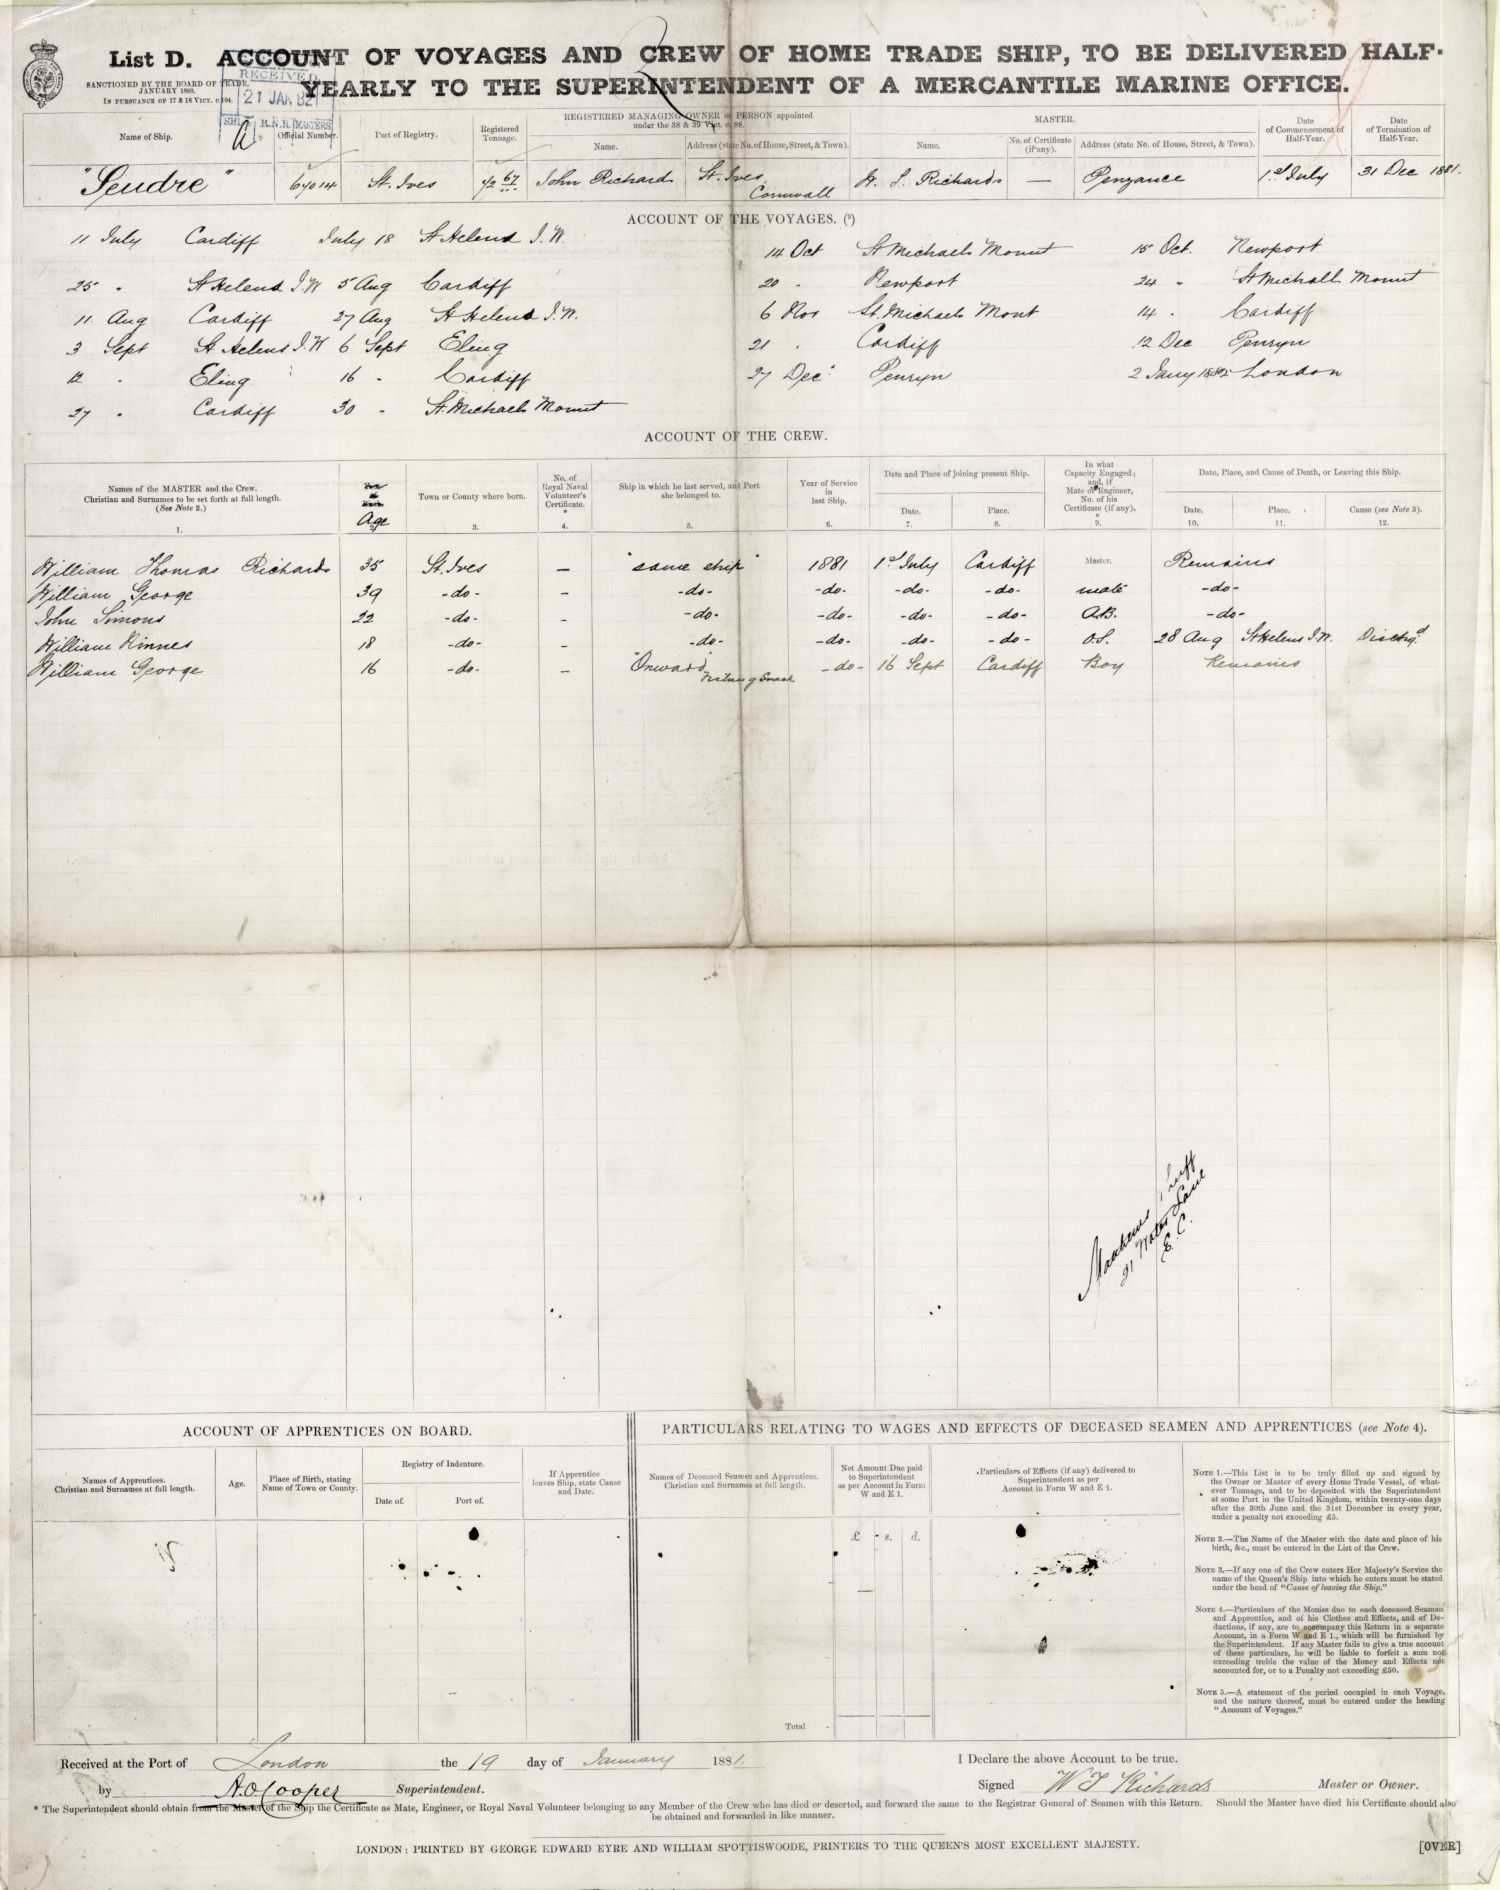 List D. ACCOUNT OF VOYAGES AND CREW OF HOME TRADE SHIP, TO BE DELIVERED HALF-
YEARLY TO THE SUPERINTENDENT OF A MERCANTILE MARINE OFFICE.
SANCTIONED BY THE BOARD OF TRADE,
JANUARY 1880.
IN PURSUANCE OF 17 & 18 VICT. c. 104.
RECEIVED
21 JAN 82
R.N.R. MASTERS
Name of Ship. Official Number. Port of Registry. Registered Tonnage. REGISTERED MANAGING OWNER or PERSON appointed under the 38 & 39 Vict. c. 88. MASTER. Date of Commencement of Half-Year. Date of Termination of Half-Year.
Name. Address (state No. of House, Street, & Town). Name. No. of Certificate (if any). Address (state No. of House, Street, & Town).
"Seudre" 67014 St. Ives 72 67 John Richard St. Ives, Cornwall W. T. Richards — Penzance 1st July 31 Dec 1881.
ACCOUNT OF THE VOYAGES. (5)
11 July Cardiff July 18 St Helens I.W. 14 Oct St Michaels Mount 15 Oct. Newport
25 " St Helens I.W 5 Aug Cardiff 20 " Newport 24 " St Michall Mount
11. Aug Cardiff 27 Aug St Helens I.W. 6 Nov St. Michaels Mont 14 " Cardiff
3 Sept St Helens I.W 6 Sept Eling 21 " Cardiff 12 Dec Penryn
12 " Eling 16 " Cardiff 27 Dec: Penryn 2 Jany 1882 London
27 " Cardiff 30 " St. Michaels Mount
ACCOUNT OF THE CREW.
Names of the MASTER and the Crew. Christian and Surnames to be set forth at full length. (See Note 2.) Age Town or County where born. No. of Royal Naval Volunteer's Certificate. * Ship in which he last served, and Port she belonged to. Year of Service in last Ship. Date and Place of joining present Ship. In what Capacity Engaged; and, if Mate or Engineer, No. of his Certificate (if any). * Date, Place, and Cause of Death, or Leaving this Ship.
Date. Place. Date. Place. Cause (see Note 3).
1. 3. 4. 5. 6. 7. 8. 9. 10. 11. 12.
William Thomas Richards 35 St. Ives — "same ship" 1881 1st July Cardiff Master. Remains
William George 39 -do- - -do- -do- -do- -do- mate -do-
John Simons 22 -do- - -do- -do- -do- -do- A.B. -do-
William Kinnes 18 -do- - -do- -do- -do- -do- O.S. 28 Aug St Helens I.W. Dischgd
William George 16 -do- - "Onward" Fishing Smack -do- 16 Sept Cardiff Boy Remains
21 Water Lane
E. C.
ACCOUNT OF APPRENTICES ON BOARD. PARTICULARS RELATING TO WAGES AND EFFECTS OF DECEASED SEAMEN AND APPRENTICES (see Note 4).
Names of Apprentices. Christian and Surnames at full length. Age. Place of Birth, stating Name of Town or County. Registry of Indenture. Date of. Port of. If Apprentice leaves Ship, state Cause and Date.
Names of Deceased Seamen and Apprentices. Christian and Surnames at full length. Net Amount Due paid to Superintendent as per Account in Form W and E 1. Particulars of Effects (if any) delivered to Superintendent as per Account in Form W and E 1.
£ s. d.
Total
NOTE 1.—This List is to be truly filled up and signed by
the Owner or Master of every Home Trade Vessel, of what-
ever Tonnage, and to be deposited with the Superintendent
at some Port in the United Kingdom, within twenty-one days
after the 30th June and the 31st December in every year,
under a penalty not exceeding £5.
NOTE 2.—The Name of the Master with the date and place of his
birth, &c., must be entered in the List of the Crew.
NOTE 3.—If any one of the Crew enters Her Majesty's Service the
name of the Queen's Ship into which he enters must be stated
under the head of "Cause of leaving the Ship."
NOTE 4.—Particulars of the Monies due to each deceased Seaman
and Apprentice, and of his Clothes and Effects, and of De-
ductions, if any, are to accompany this Return in a separate
Account, in a Form W and E 1., which will be furnished by
the Superintendent. If any Master fails to give a true account
of these particulars, he will be liable to forfeit a sum not
exceeding treble the value of the Money and Effects not
accounted for, or to a Penalty not exceeding £50.
NOTE 5.—A statement of the period occupied in each Voyage,
and the nature thereof, must be entered under the heading
"Account of Voyages."
Received at the Port of London the 19 day of January 1881. I Declare the above Account to be true.
by A.O Cooper Superintendent. Signed W T Richards Master or Owner.
* The Superintendent should obtain from the Master of the Ship the Certificate as Mate, Engineer, or Royal Naval Volunteer belonging to any Member of the Crew who has died or deserted, and forward the same to the Registrar General of Seamen with this Return. Should the Master have died his Certificate should also
be obtained and forwarded in like manner.
LONDON: PRINTED BY GEORGE EDWARD EYRE AND WILLIAM SPOTTISWOODE, PRINTERS TO THE QUEEN'S MOST EXCELLENT MAJESTY.
[OVER]